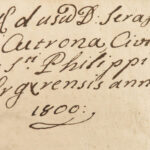 Ad usũ D. Seraf
Cutrona Civi
s Sti Philippi
Argyrensis ann
1800: